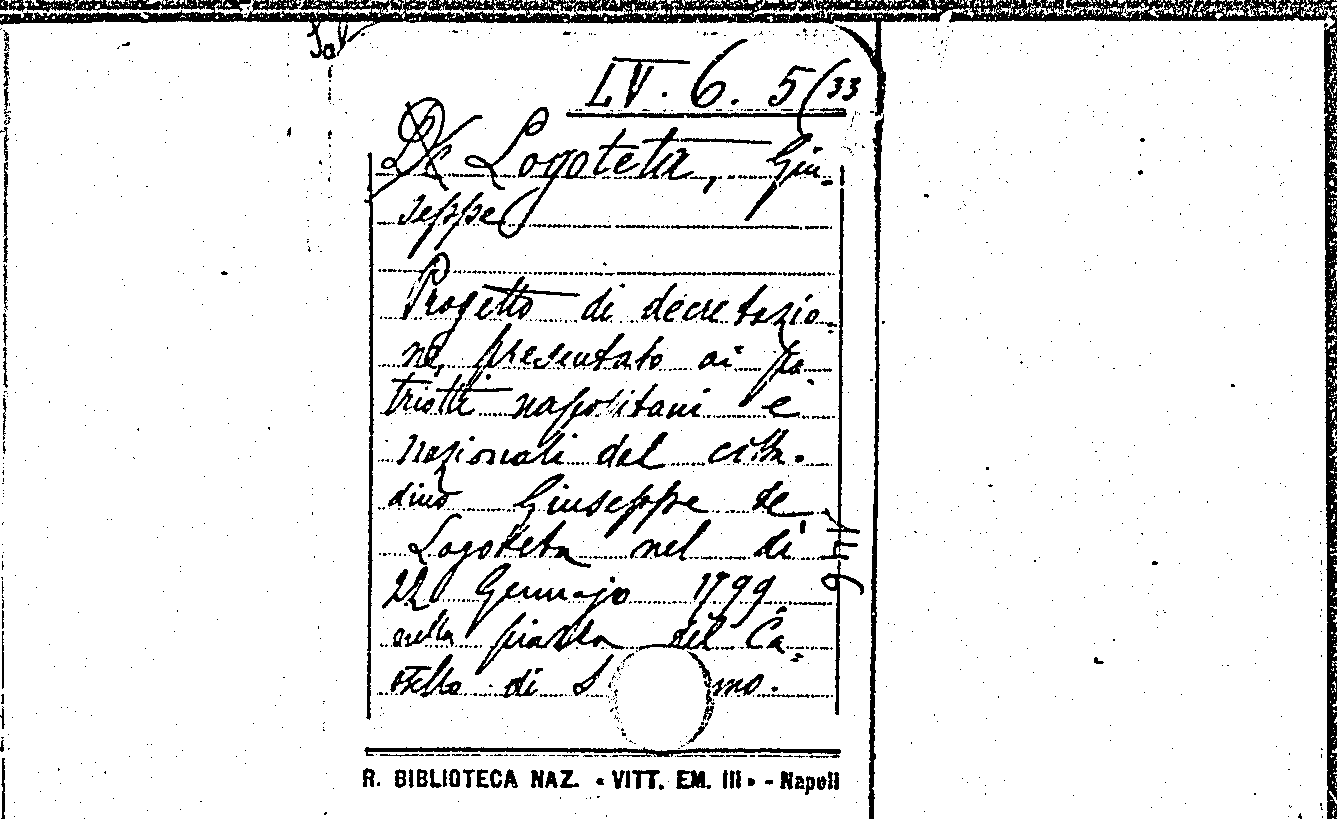 Sal
LV. 6. 5(33
De Logoteta, Giu-
seppe
Progetto di decretazio-
ne, presentato ai pa
triotti napolitani e
nazionali dal citta-
dino Giuseppe de
Logoteta nel di
22 Gennajo 1799
nella piazza del Ca-
stello di S mo.
R. BIBLIOTECA NAZ. « VITT. EM. III » - Napoli